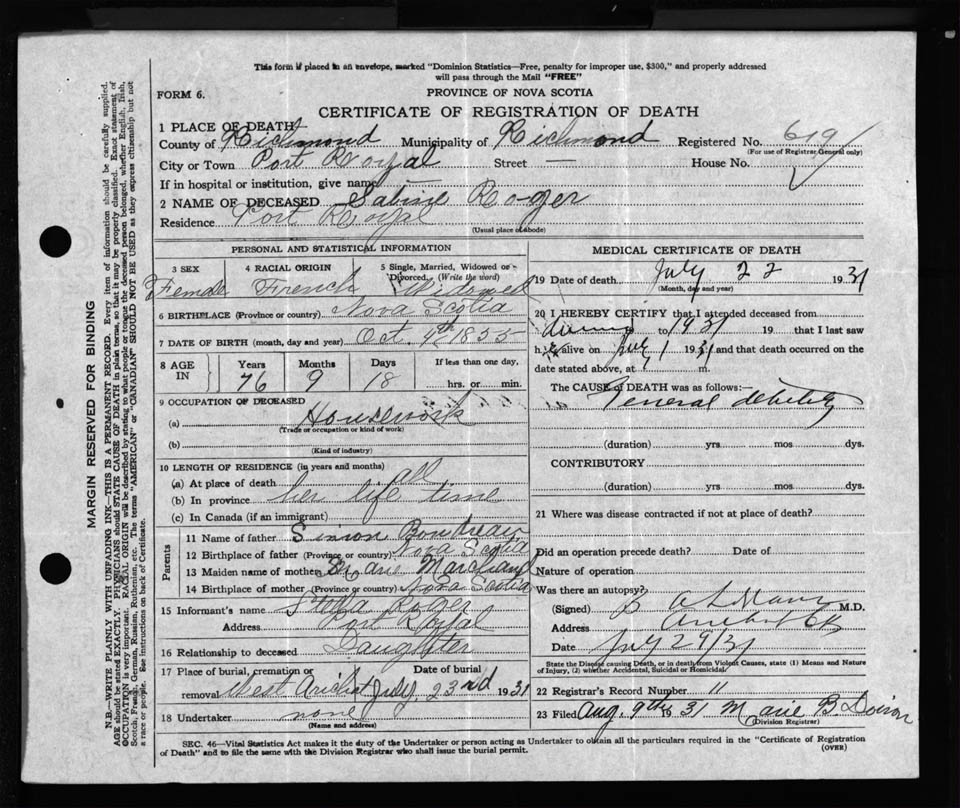 This form if placed in an envelope, marked "Dominion Statistics—Free, penalty for improper use, $300," and properly addressed
will pass through the Mail "FREE"
FORM 6.
PROVINCE OF NOVA SCOTIA
CERTIFICATE OF REGISTRATION OF DEATH
1 PLACE OF DEATH
County of Richmond Municipality of Richmond Registered No. 619
(For use of Registrar General only)
City or Town Port Royal Street House No.
If in hospital or institution, give name
2 NAME OF DECEASED Sabine Roger
Residence Port Royal
(Usual place of abode)
PERSONAL AND STATISTICAL INFORMATION
3 SEX 4 RACIAL ORIGIN 5 Single, Married, Widowed or Divorced. (Write the word)
Female French Widowed
6 BIRTHPLACE (Province or country) Nova Scotia
7 DATE OF BIRTH (month, day and year) Oct. 4th 1855
8 AGE IN Years Months Days If less than one day,
76 9 18 hrs. or min.
9 OCCUPATION OF DECEASED
(a) Housework
(Trade or occupation or kind of work)
(b)
(Kind of industry)
10 LENGTH OF RESIDENCE (in years and months)
(a) At place of death all
(b) In province her life time
(c) In Canada (if an immigrant)
Parents
11 Name of father Simon Boudreau
12 Birthplace of father (Province or country) Nova Scotia
13 Maiden name of mother Marie Marchand
14 Birthplace of mother (Province or country) Nova Scotia
15 Informant's name Stella Roger
Address Port Royal
16 Relationship to deceased Daughter
17 Place of burial, cremation or removal Date of burial
West Arichat July 23rd 1931
18 Undertaker none
(Name and address)
MEDICAL CERTIFICATE OF DEATH
19 Date of death July 22 1931
(Month, day and year)
20 I HEREBY CERTIFY that I attended deceased from
to 1931 19 that I last saw
h er alive on July 1 1931 and that death occurred on
date stated above, at m.
The CAUSE of DEATH was as follows:
General debility
(duration) yrs mos dys.
CONTRIBUTORY
(duration) yrs mos dys.
21 Where was disease contracted if not at place of death?
Did an operation precede death? Date of
Nature of operation
Was there an autopsy?
(Signed) M.D.
Address Arichat CB
Date July 24/31
State the Disease causing Death, or in death from Violent Causes, state (1) Means and Nature
of Injury, (2) whether Accidental, Suicidal or Homicidal.
22 Registrar's Record Number 11
23 Filed Aug. 9th 1931 Marie B. Doiron
(Division Registrar)
SEC. 46—Vital Statistics Act makes it the duty of the Undertaker or person acting as Undertaker to obtain all the particulars required in the "Certificate of Registration
of Death" and to file the same with the Division Registrar who shall issue the burial permit.
(OVER)
MARGIN RESERVED FOR BINDING
N.B.—WRITE PLAINLY WITH UNFADING INK—THIS IS A PERMANENT RECORD. Every item of information should be carefully supplied.
AGE should be stated EXACTLY. PHYSICIANS should STATE CAUSE OF DEATH in plain terms, so that it may be properly classified. Exact statement of
OCCUPATION is very important. RACIAL ORIGIN will be described by stating to what people or tongue the deceased person belonged, whether English, Irish,
Scotch, French, German, Russian, Ruthenian, etc. The terms "AMERICAN" or "CANADIAN" SHOULD NOT BE USED as they express citizenship but not
a race or people. See instructions on back of Certificate.